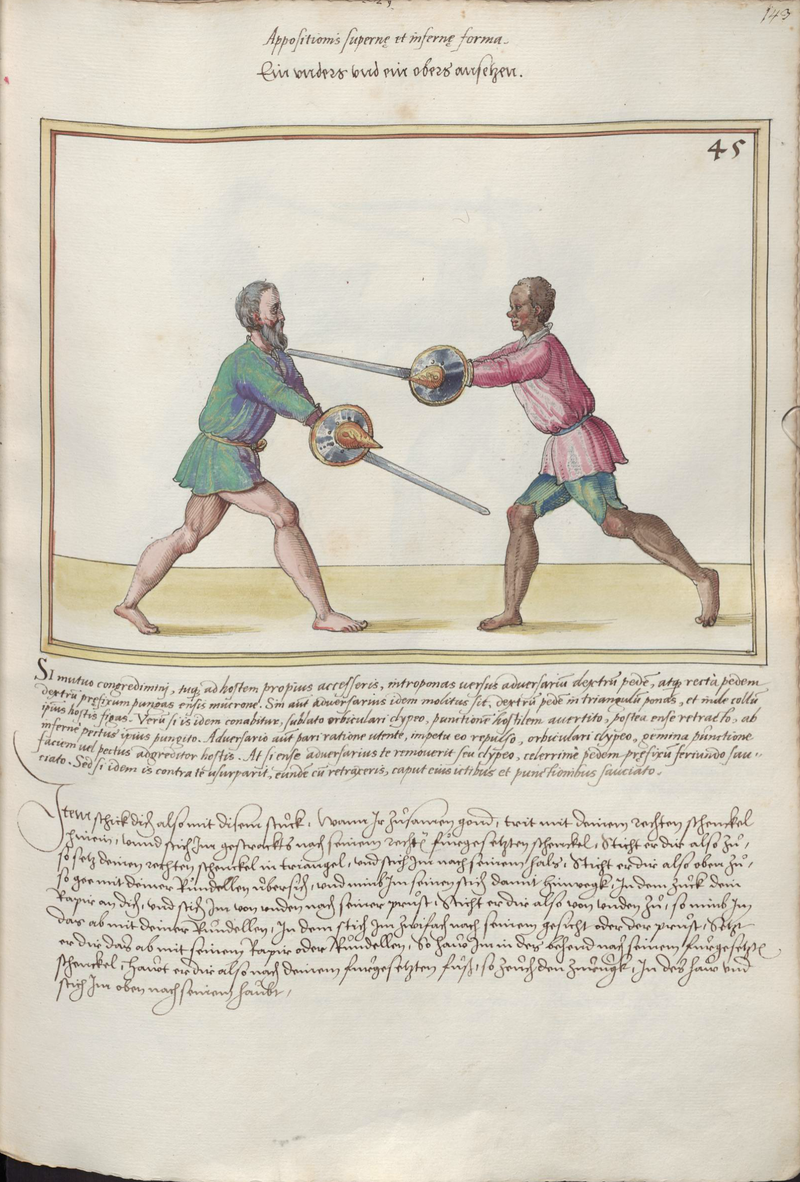 143
Appositionis supernę et infernę forma.
Ein vnders vnd ein obers ansetzen.
45
SI mutuo congredimini, tuq; ad hostem propius accesseris, introponas versus adversariũ dextrũ pedẽ, atq; recta pedem
dextrũ pręfixum pungas ensis mucrone. Sin aũt adversarius idem molitus sit, dextrũ pedẽ in triangulũ ponas, et inde collũ
ipius hostis figas. Verũ si is idem conabitur, sublato orbiculari clypeo, punctionẽ hostilem avertito, postea ense retracto, ab
inferne pectus ipius pungito. Adversario aũt pari ratione utente, impetu eo repulso, orbiculari clypeo, gemina punctione
faciem vel pectus adgreditor hostis. At si ense adversarius te removerit seu clypeo, celerrime pedem pręfixũ feriundo sau-
ciato. Sed si idem is contra te usurparit, eunde cũ retraxeris, caput eius ictibus et punctionibus sauciato.
Item schick dich also mit disem stuckh, Wann Ir zusamen gond, trit mit deinem rechten schenckel
hinein, vnnd stich Im gestrackts nach seinem recht furgesetzten schenckel, Sticht er dir also zu,
so setz deinen rechten schenckel in triangel, vnd stich Im nach seinem hals, Sticht er dir also oben zu,
so gee mit deiner Rundellen vbersich, vnd nimb Im seinen stich damit hinwegk, In dem zuck dein
Rapir an dich, vnd stich Im von vnden nach seiner prust, Sticht er dir also von vnden zu, so nimb Im
das ab mit deiner Rundellen, In dem stich Im zwifach nach seinem gesicht oder der prust, Setzt
er dir das ab mit seinem Rapir oder Rundellen, So haw Im in des behend nach seinem furgesetzten
schenckel, hawt er dir also nach deinem furgesetzten fuß, so zeuch den zurugk, In des haw vnd
stich Im oben nach seinem haubt,